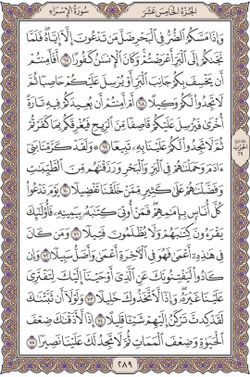 سُورَةُ الإِسْرَاءِ
الجُزْءُ الخَامِسَ عَشَرَ
وَإِذَا مَسَّكُمُ ٱلضُّرُّ فِى ٱلْبَحْرِ ضَلَّ مَن تَدْعُونَ إِلَّآ إِيَّاهُ ۖ فَلَمَّا
نَجَّىٰكُمْ إِلَى ٱلْبَرِّ أَعْرَضْتُمْ ۚ وَكَانَ ٱلْإِنسَٰنُ كَفُورًا ٦٧ أَفَأَمِنتُمْ
أَن يَخْسِفَ بِكُمْ جَانِبَ ٱلْبَرِّ أَوْ يُرْسِلَ عَلَيْكُمْ حَاصِبًا ثُمَّ
لَا تَجِدُوا۟ لَكُمْ وَكِيلًا ٦٨ أَمْ أَمِنتُمْ أَن يُعِيدَكُمْ فِيهِ تَارَةً
أُخْرَىٰ فَيُرْسِلَ عَلَيْكُمْ قَاصِفًا مِّنَ ٱلرِّيحِ فَيُغْرِقَكُم بِمَا كَفَرْتُمْ
ثُمَّ لَا تَجِدُوا۟ لَكُمْ عَلَيْنَا بِهِۦ تَبِيعًا ٦٩ وَلَقَدْ كَرَّمْنَا بَنِىٓ
ءَادَمَ وَحَمَلْنَٰهُمْ فِى ٱلْبَرِّ وَٱلْبَحْرِ وَرَزَقْنَٰهُم مِّنَ ٱلطَّيِّبَٰتِ
وَفَضَّلْنَٰهُمْ عَلَىٰ كَثِيرٍ مِّمَّنْ خَلَقْنَا تَفْضِيلًا ٧٠ يَوْمَ نَدْعُوا۟
كُلَّ أُنَاسٍۭ بِإِمَٰمِهِمْ ۖ فَمَنْ أُوتِىَ كِتَٰبَهُۥ بِيَمِينِهِۦ فَأُو۟لَٰٓئِكَ
يَقْرَءُونَ كِتَٰبَهُمْ وَلَا يُظْلَمُونَ فَتِيلًا ٧١ وَمَن كَانَ
فِى هَٰذِهِۦٓ أَعْمَىٰ فَهُوَ فِى ٱلْءَاخِرَةِ أَعْمَىٰ وَأَضَلُّ سَبِيلًا ٧٢ وَإِن
كَادُوا۟ لَيَفْتِنُونَكَ عَنِ ٱلَّذِىٓ أَوْحَيْنَآ إِلَيْكَ لِتَفْتَرِىَ
عَلَيْنَا غَيْرَهُۥ ۖ وَإِذًا لَّٱتَّخَذُوكَ خَلِيلًا ٧٣ وَلَوْلَآ أَن ثَبَّتْنَٰكَ
لَقَدْ كِدتَّ تَرْكَنُ إِلَيْهِمْ شَيْـًٔا قَلِيلًا ٧٤ إِذًا لَّأَذَقْنَٰكَ ضِعْفَ
ٱلْحَيَوٰةِ وَضِعْفَ ٱلْمَمَاتِ ثُمَّ لَا تَجِدُ لَكَ عَلَيْنَا نَصِيرًا ٧٥
٢٨٩